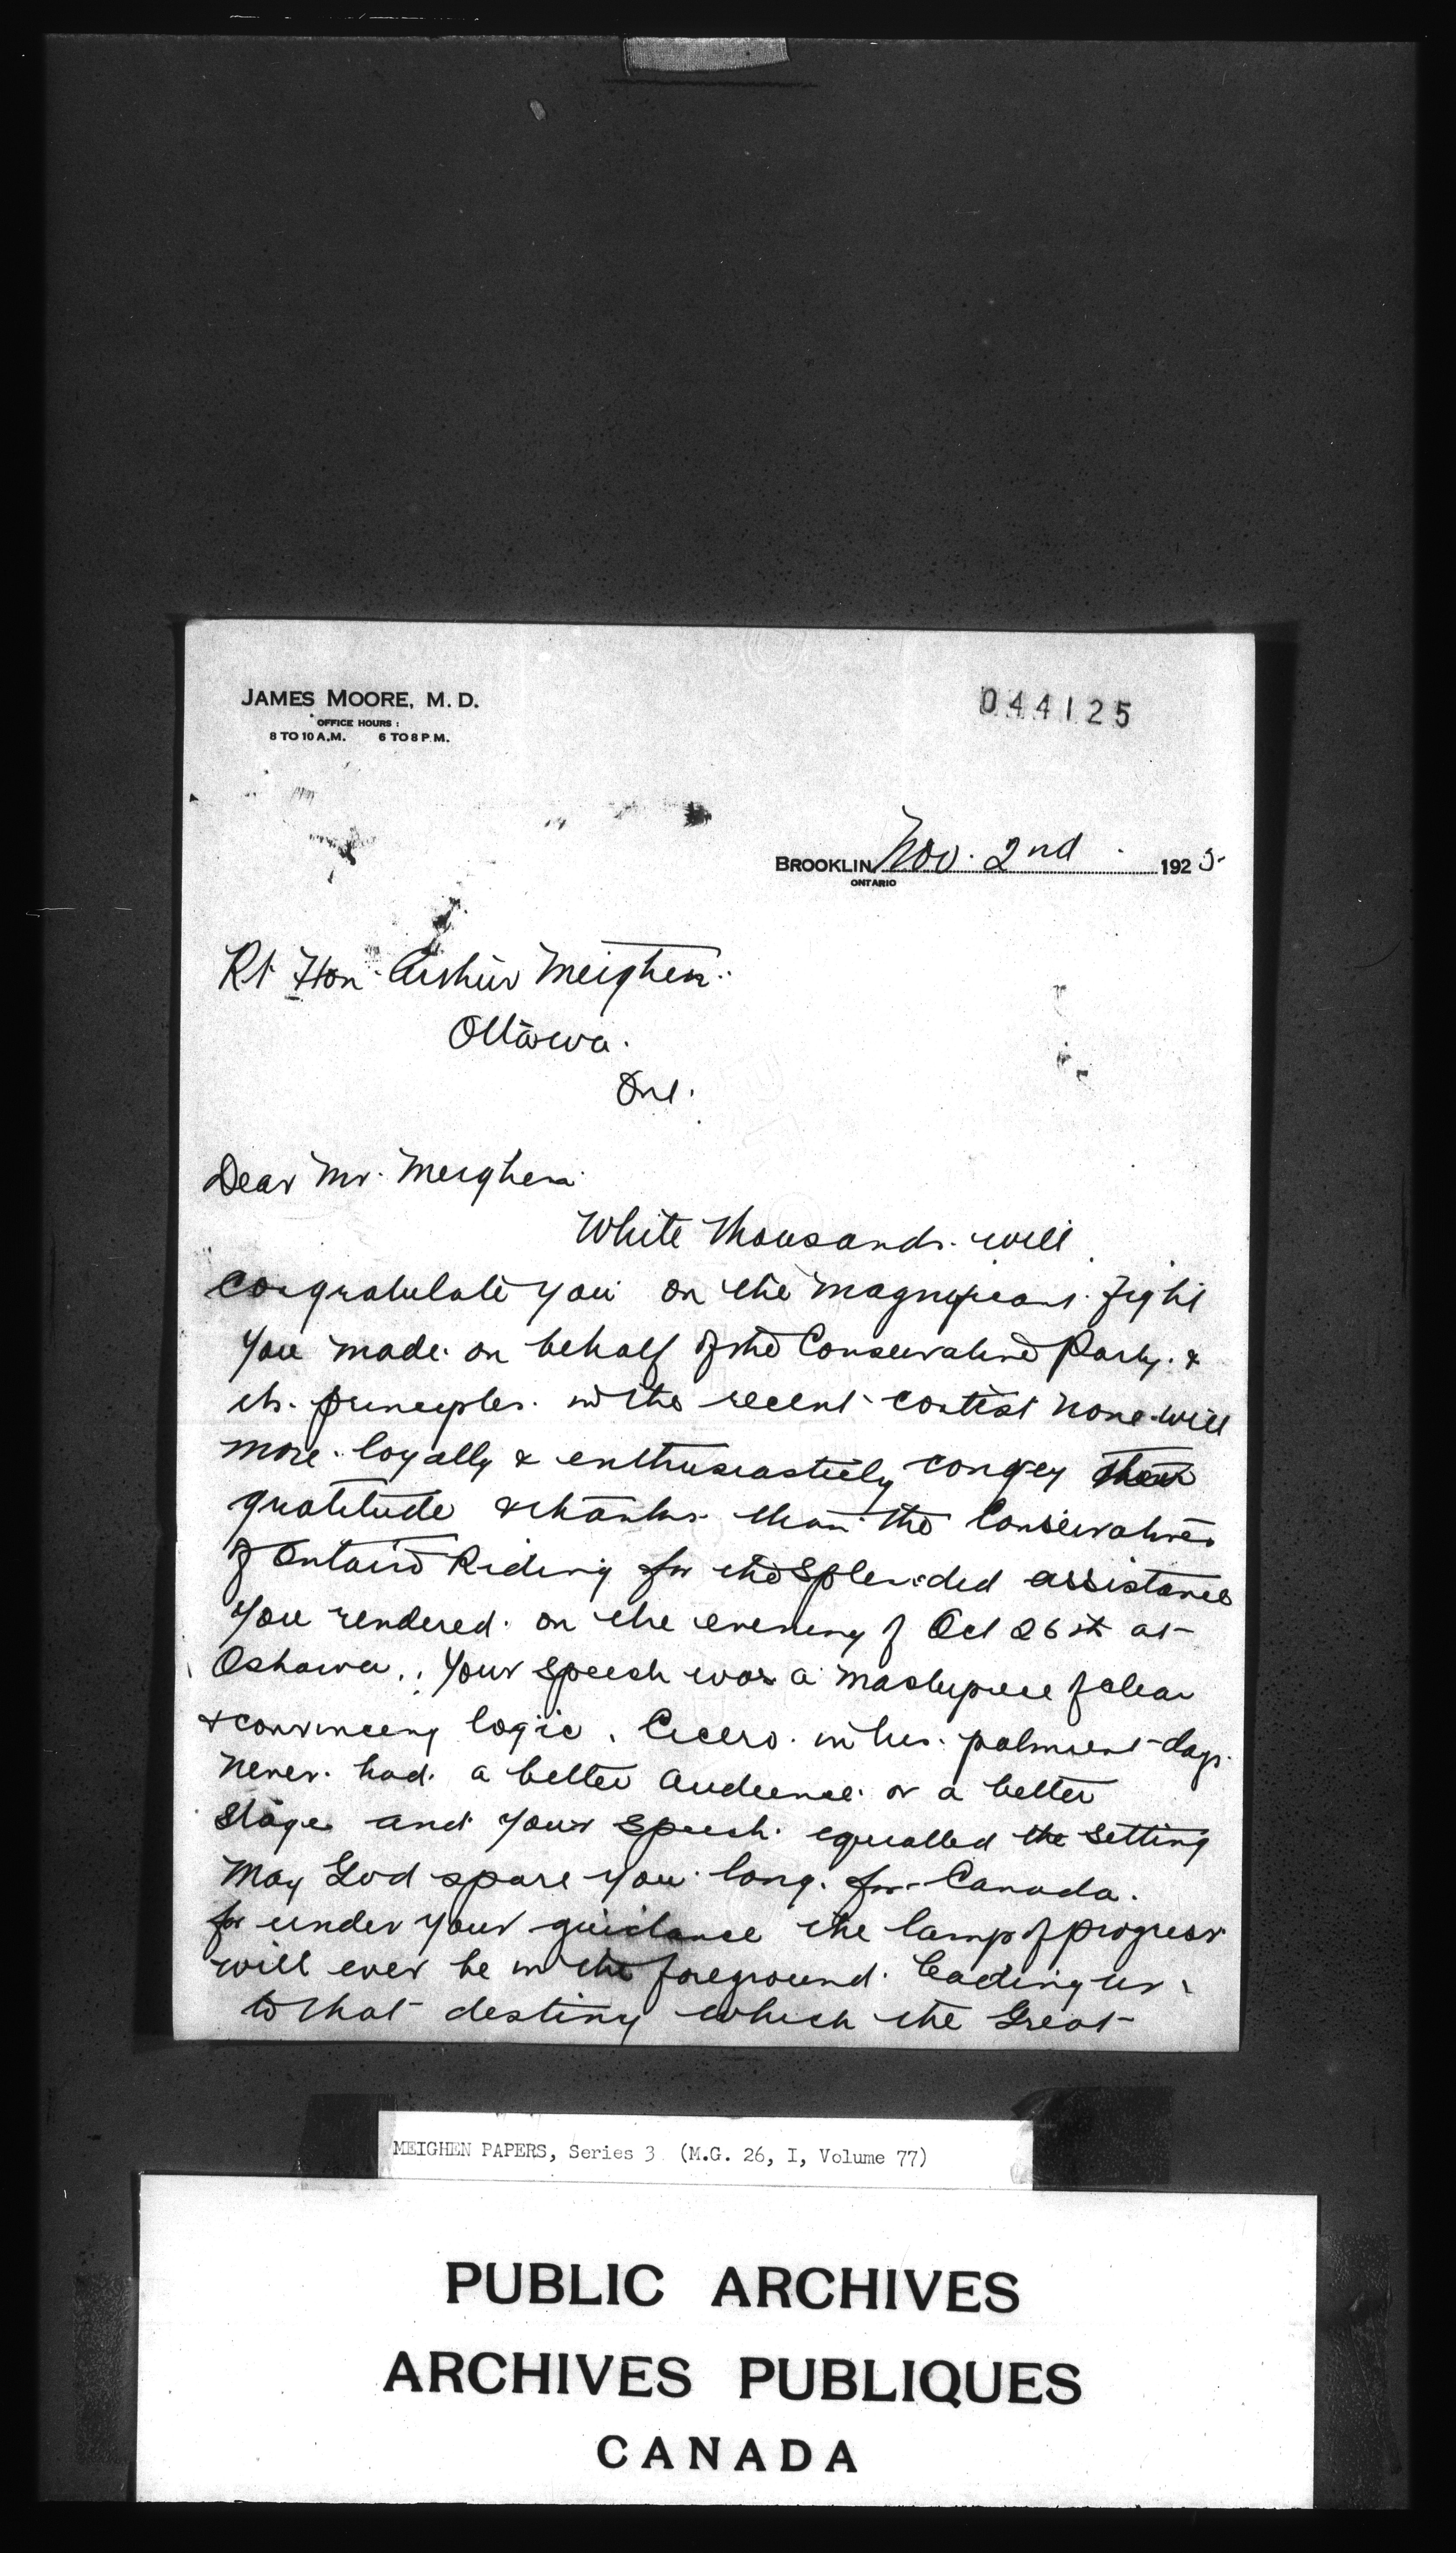 JAMES MOORE, M.D.
OFFICE HOURS:
8 TO 10 A.M. 6 TO 8 P.M.
044125
BROOKLIN, Nov. 2nd 1925
ONTARIO
Rt Hon. Arthur Meighen.
Ottawa.
Ont.
Dear Mr. Meighen
While thousands will
congratulate you on the magnificent fight
you made on behalf of the Conservative Party &
its principles in the recent contest none will
more loyally & enthusiastically convey their
gratitude & thanks than the Conservatives
of Ontario Riding for the splendid assistance
you rendered on the evening of Oct 26th at
Oshawa. Your speech was a masterpiece of clear
& convincing logic. Cicero in his palmiest days
never had a better audience or a better
stage and your speech equalled the setting
May God spare you long for Canada.
for under your guidance the lamp of progress
will ever be in the foreground leading us
to that destiny which the Great
MEIGHEN PAPERS, Series 3 (M.G. 26, I, Volume 77)
PUBLIC ARCHIVES
ARCHIVES PUBLIQUES
CANADA